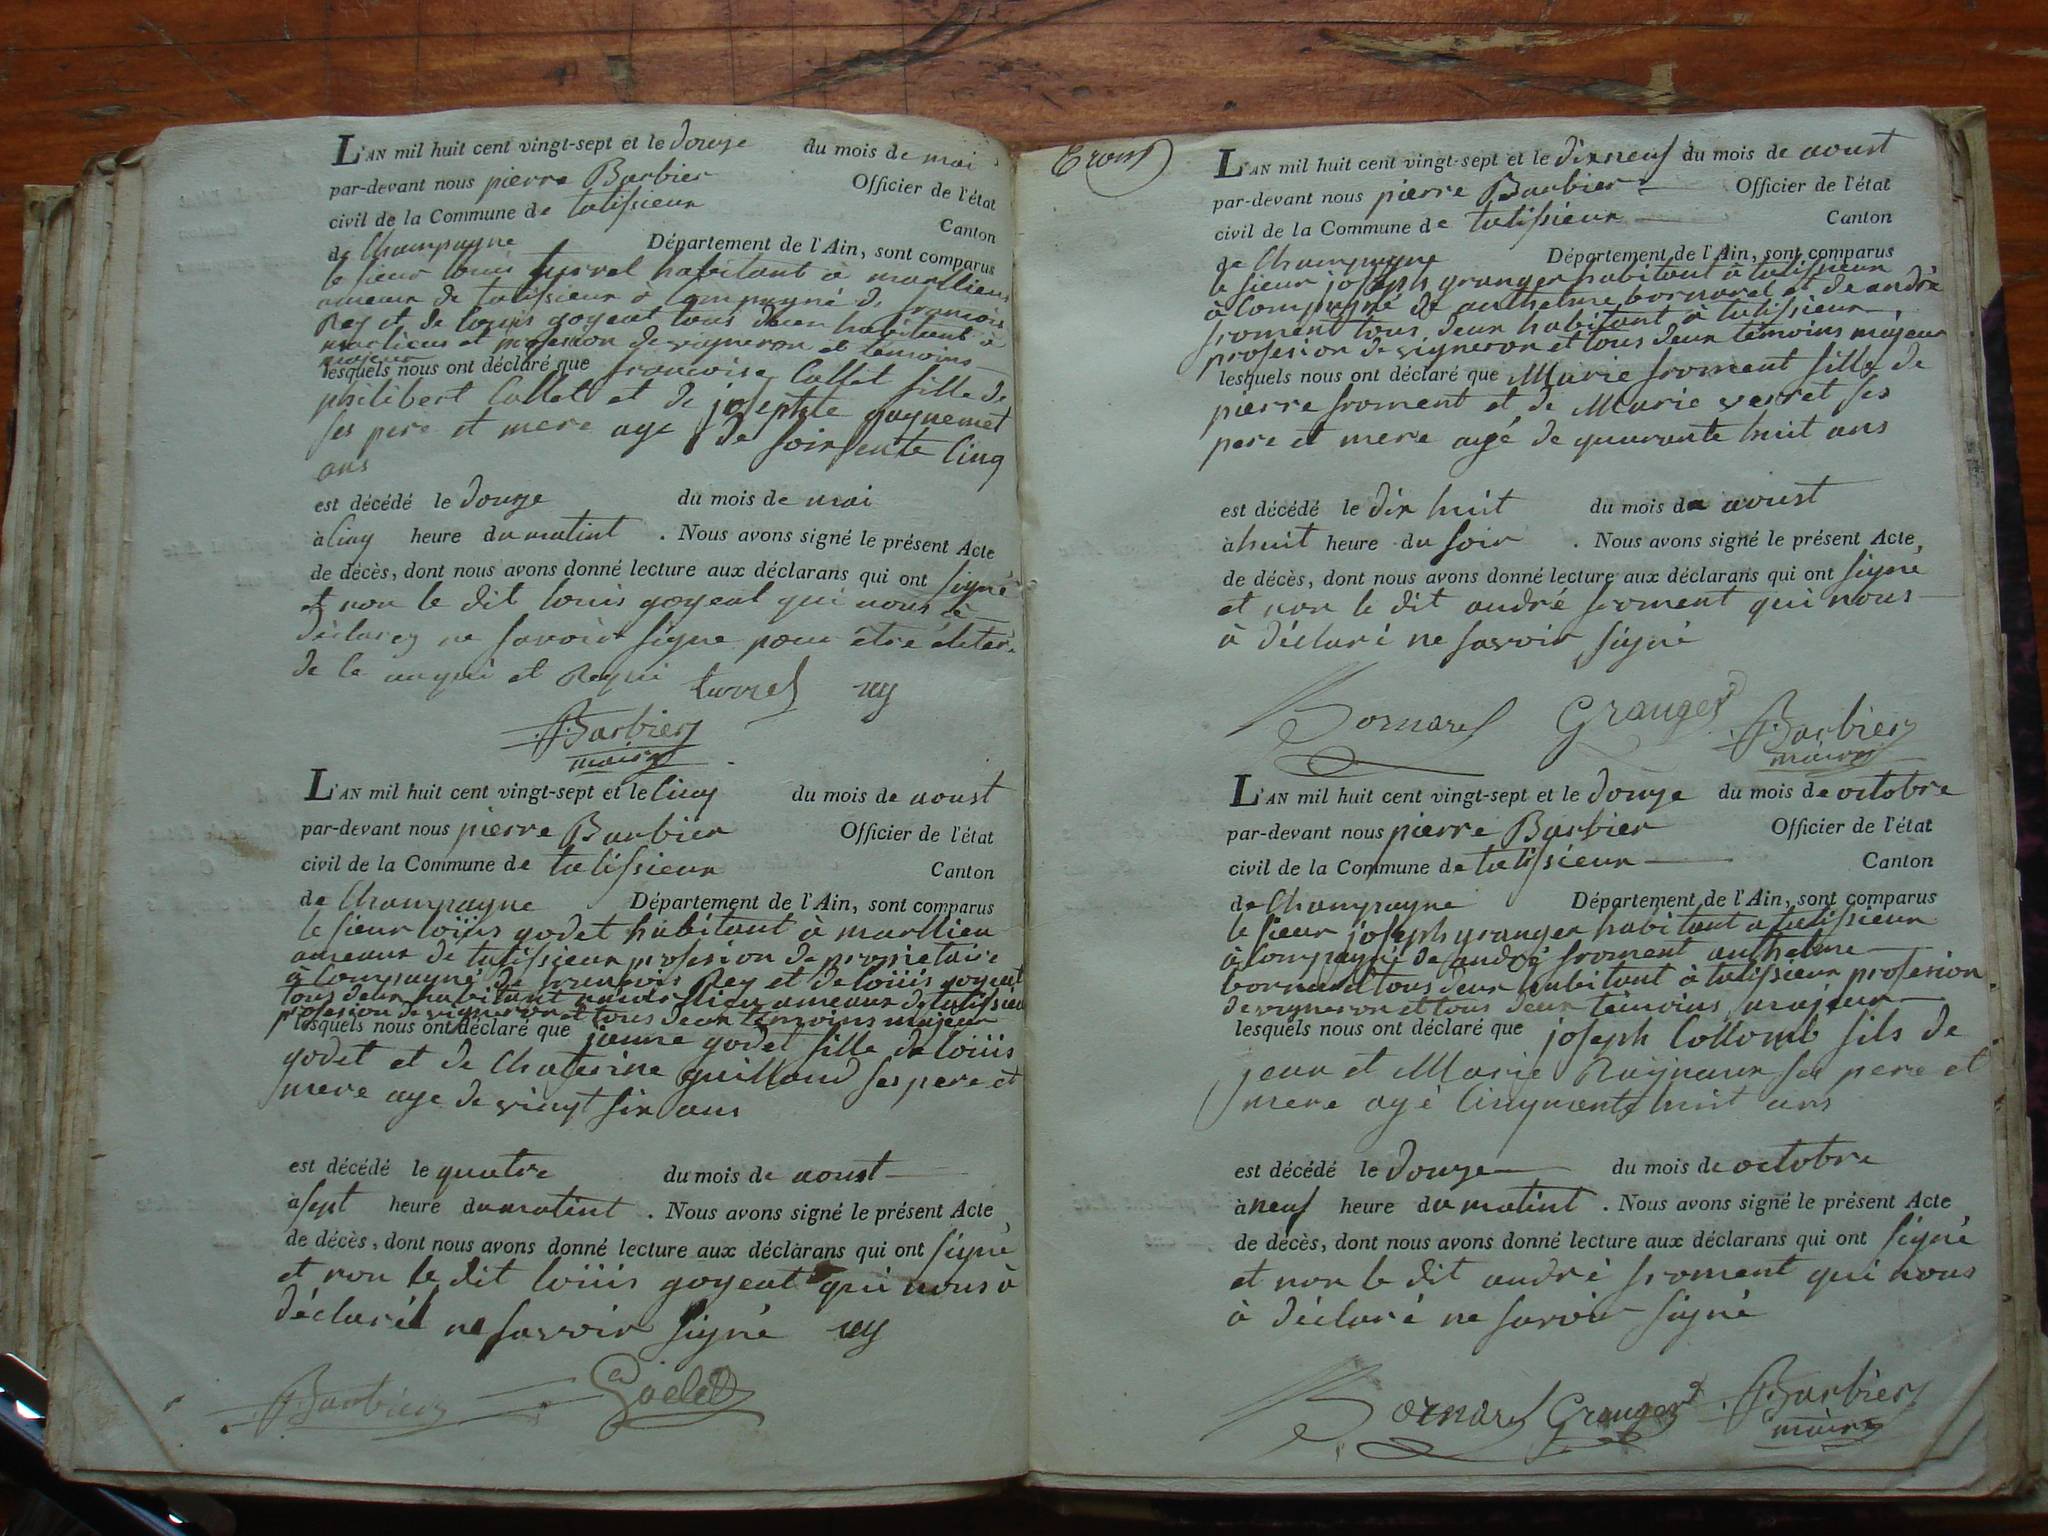 L'AN mil huit cent vingt-sept et le douze du mois de mai
par-devant nous pierre Barbier Officier de l'état
civil de la Commune de talissieux
Canton
de Champagne Département de l'Ain, sont comparus
le sieur louis turrel habitant à marllieux
ameaux de talissieux à Compagné de francois
Rey et de louis goyeat tous deux habitant à
marlieux et profesion de vigneron et témoins
majeur
lesquels nous ont déclaré que francoise Collet fille de
philibert Collet et de josephte gagnemet
ses pere et mere age de soixsente Cinq
ans
est décédé le douze du mois de mai
à Cinq heure du matint . Nous avons signé le présent Acte
de décès, dont nous avons donné lecture aux déclarans qui ont signé
et non le dit louis goyeat qui nous à
déclarez ne savoir signe pour être
de ce anqui et Requi turrel rey
Barbier
maire
L'AN mil huit cent vingt-sept et le Cinq du mois de aoust
par-devant nous pierre Barbier Officier de l'état
civil de la Commune de talissieux Canton
de Champagne Département de l'Ain, sont comparus
le sieur loüis godet habitant à marllieu
ameaux de talissieux profesion de propriétaire
à Compagné de francois Rey et de loüis goyeat
tous deux habitant marllieu ameaux de talissieu
profesion de vigneron et tous deux témoins majeur
lesquels nous ont déclaré que jeanne godet fille de loüis
godet et de Chaterine guilland ses pere et
mere age de vingt six ans
est décédé le quatre du mois de aoust
à sept heure du matint . Nous avons signé le présent Acte
de décès, dont nous avons donné lecture aux déclarans qui ont signé
et non le dit loüis goyeat qui nous à
déclaré ne savoir signé rey
Barbier Godet
L'AN mil huit cent vingt-sept et le dixneuf du mois de aoust
par-devant nous pierre Barbier Officier de l'état
civil de la Commune de talissieux Canton
de Champagne Département de l'Ain, sont comparus
le sieur joseph granger habitant à talissieux
à Compagné de anthelme bornarel et de andré
froment tous deux habitant à talissieux
profesion de vigneron et tous deux témoins majeur
lesquels nous ont déclaré que Marie froment fille de
pierre froment et de Marie verret ses
pere et mere agé de quarante huit ans
est décédé le dix huit du mois de aoust
à huit heure du soir . Nous avons signé le présent Acte
de décès, dont nous avons donné lecture aux déclarans qui ont signé
et non le dit andré froment qui nous
à déclaré ne savoir signé
Bornarel Granger Barbier
maire
L'AN mil huit cent vingt-sept et le douze du mois de octobre
par-devant nous pierre Barbier Officier de l'état
civil de la Commune de talissieux Canton
de Champagne Département de l'Ain, sont comparus
le sieur joseph granger habitant a talissieux
à Compagné de andré froment anthelme
bornarel tous deux habitant à talissieux profesion
de vigneron et tous deux témoins majeur
lesquels nous ont déclaré que joseph Collomb fils de
jean et Marie Raynaux ses pere et
mere agé Cinquments huit ans
est décédé le douze du mois de octobre
à neuf heure du matint . Nous avons signé le présent Acte
de décès, dont nous avons donné lecture aux déclarans qui ont signé
et non le dit andré froment qui nous
à déclaré ne savoir signé
Bornarel Granger Barbier
maire